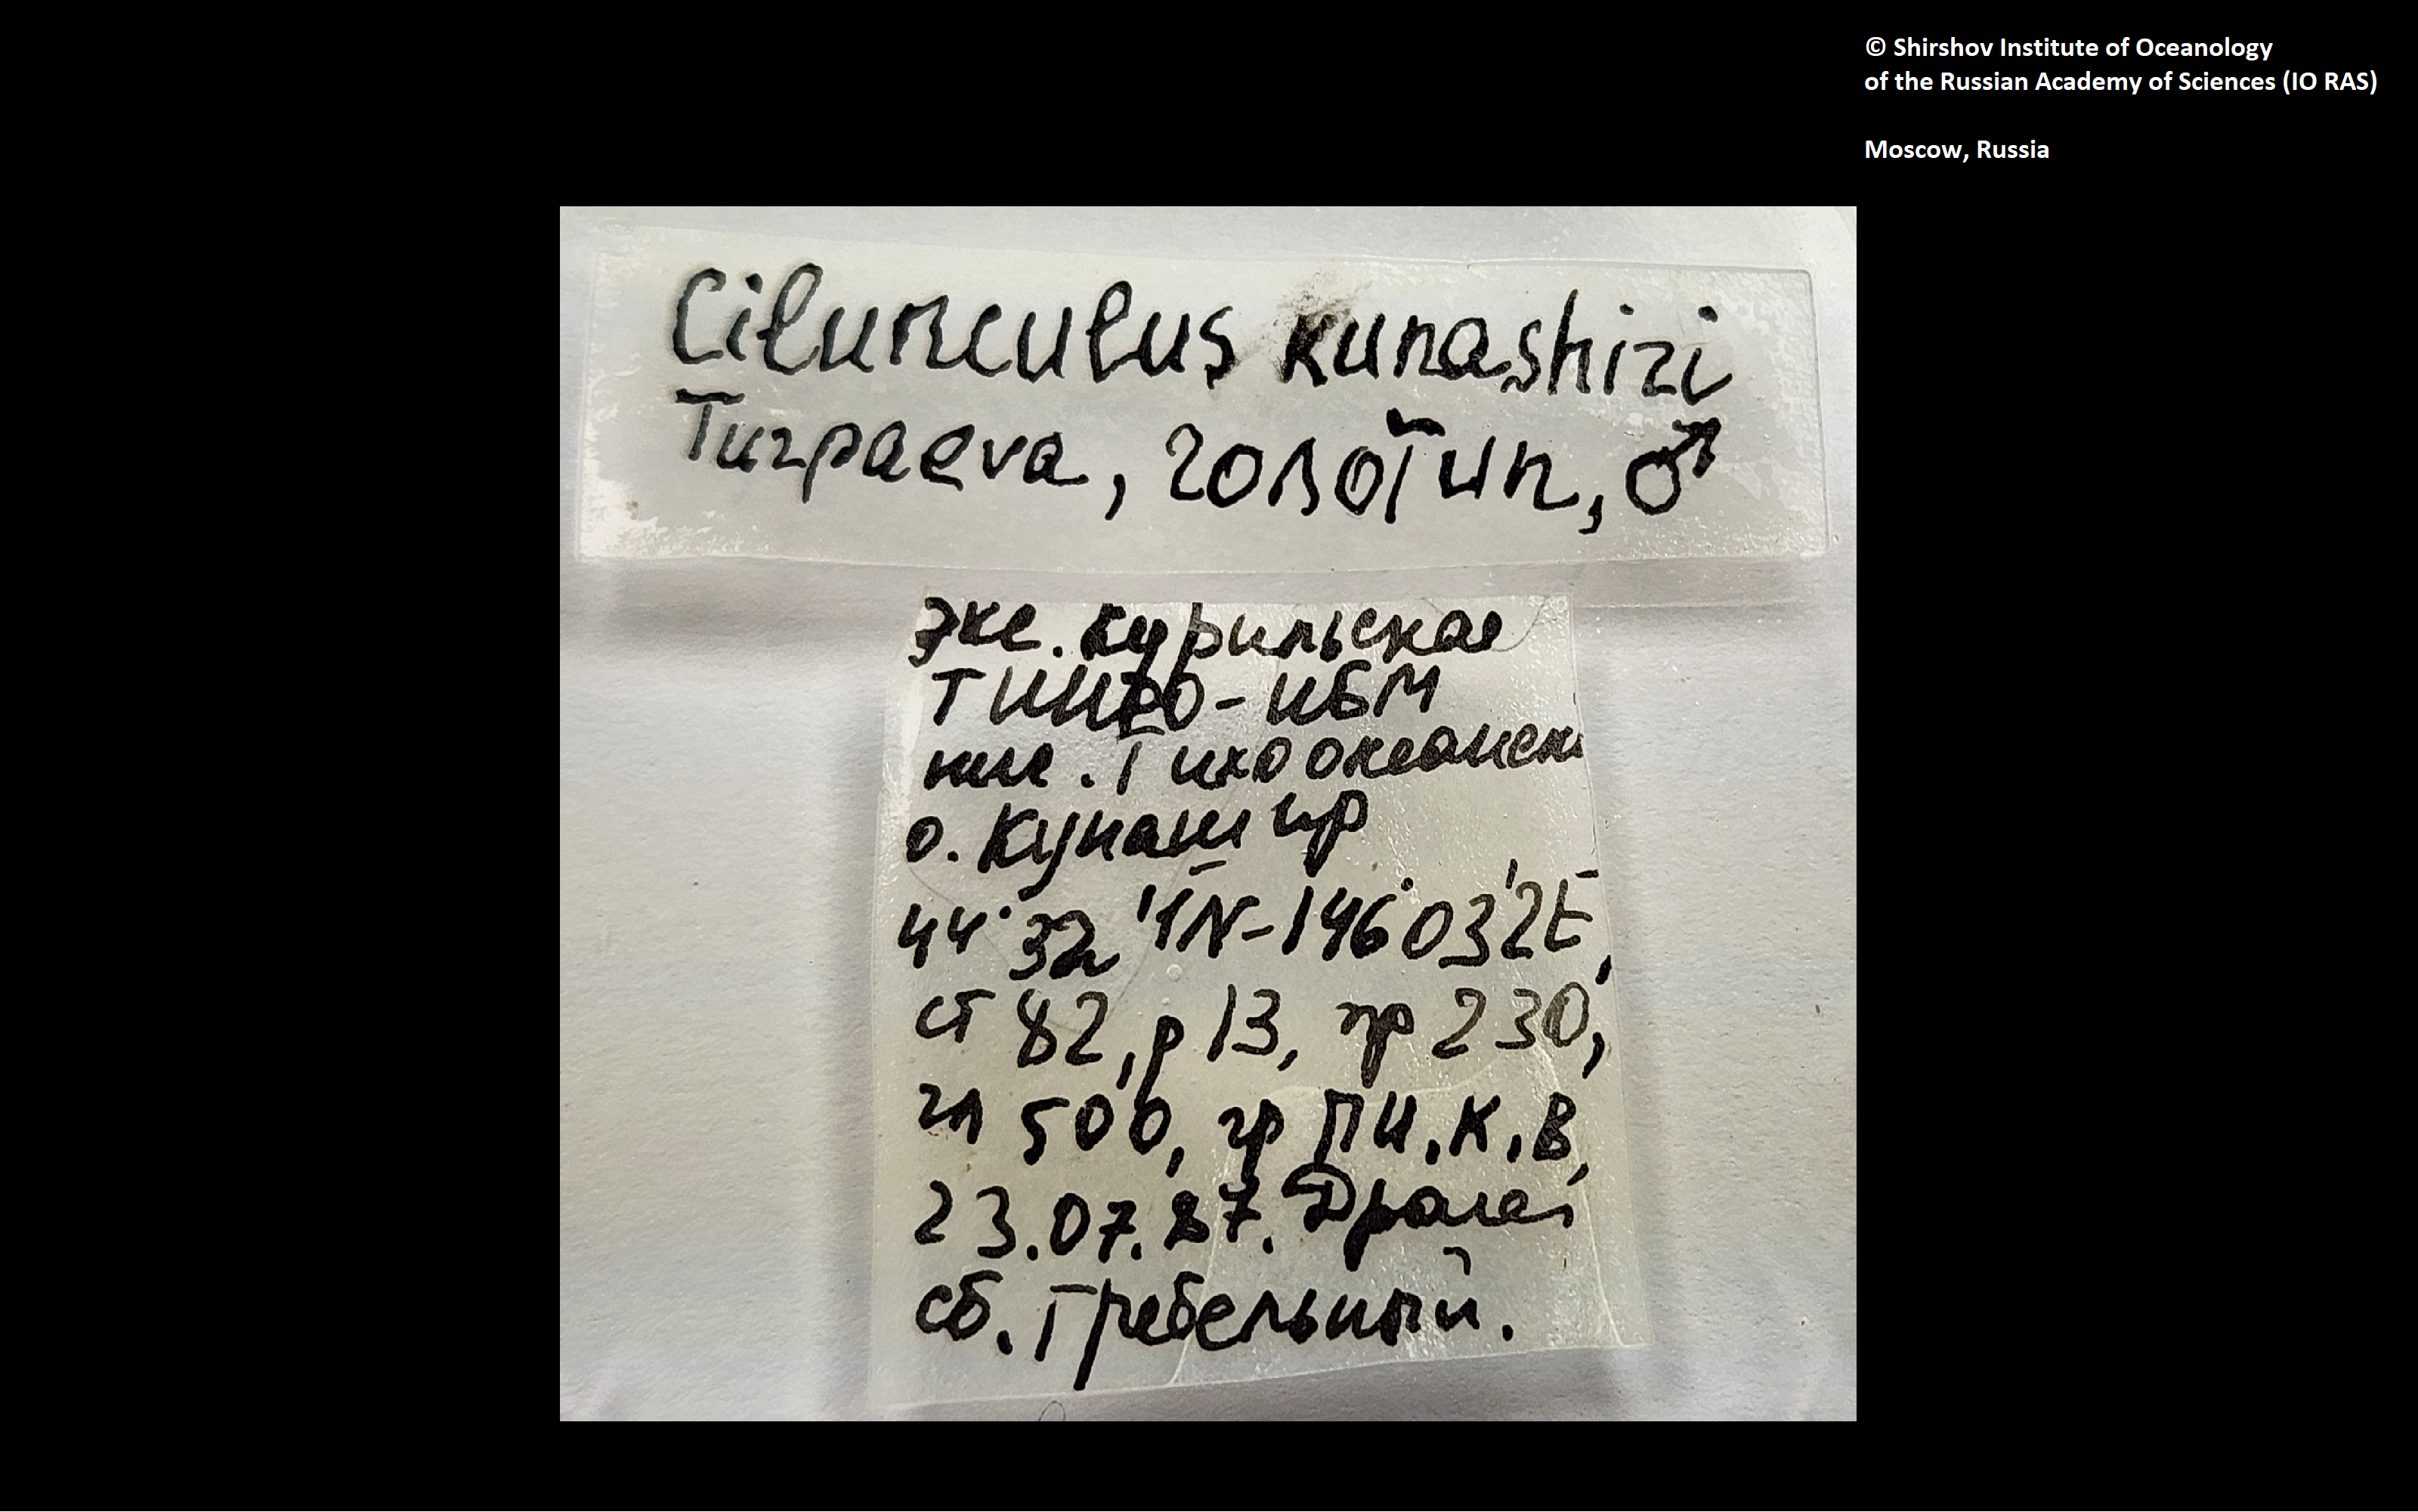 © Shirshov Institute of Oceanology
of the Russian Academy of Sciences (IO RAS)
Moscow, Russia
Cilunculus kunashiri
Turpaeva, голотип, ♂
Экс. Курильская
ТИНРО-ИБМ
нис. Тихоокеанск
о. Кунашир
44°32'1N-146°03'2E,
ст 82, р 13, пр 230,
гл 500, гр ПИ.К.В,
23.07.87. Драге,
сб. Гребельный.